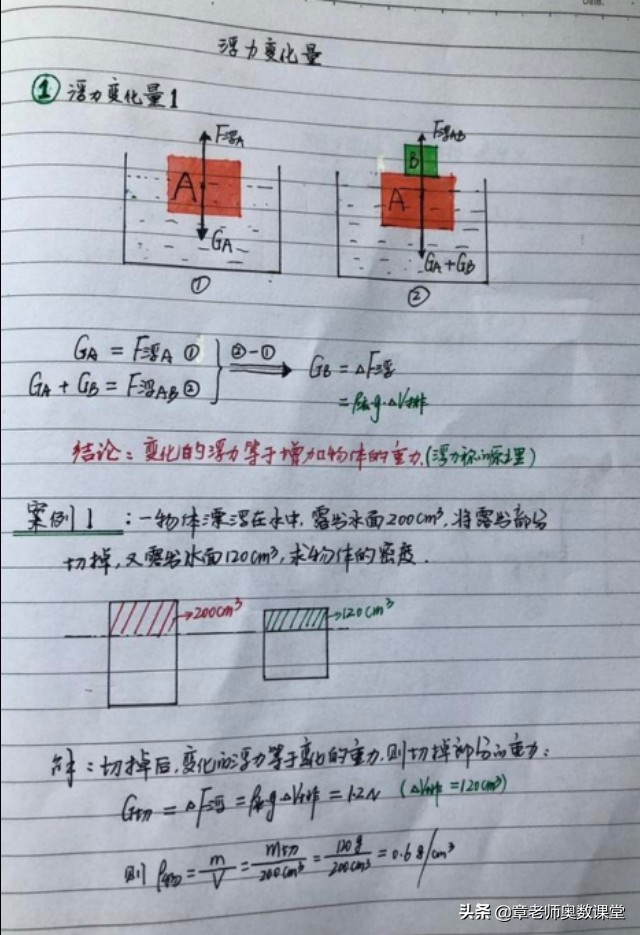 Date.
浮力变化量
① 浮力变化量1
F浮A
A
GA
①
F浮AB
B
A
GA+GB
②
GA = F浮A ①
GA + GB = F浮AB ②
②-①
GB = △F浮
= ρ液g·△V排
结论：变化的浮力等于增加物体的重力.(浮力称的原理)
案例1：一物体漂浮在水中，露出水面200cm³，将露出部分
切掉，又露出水面120cm³，求物体的密度.
200cm³
120cm³
解：切掉后，变化的浮力等于变化的重力.则切掉部分的重力：
G切 = △F浮 = ρ水g△V排 = 1.2N (△V排=120cm³)
则 ρ物 = m/V = m切/200cm³ = 120g/200cm³ = 0.6g/cm³
头条 @章老师奥数课堂